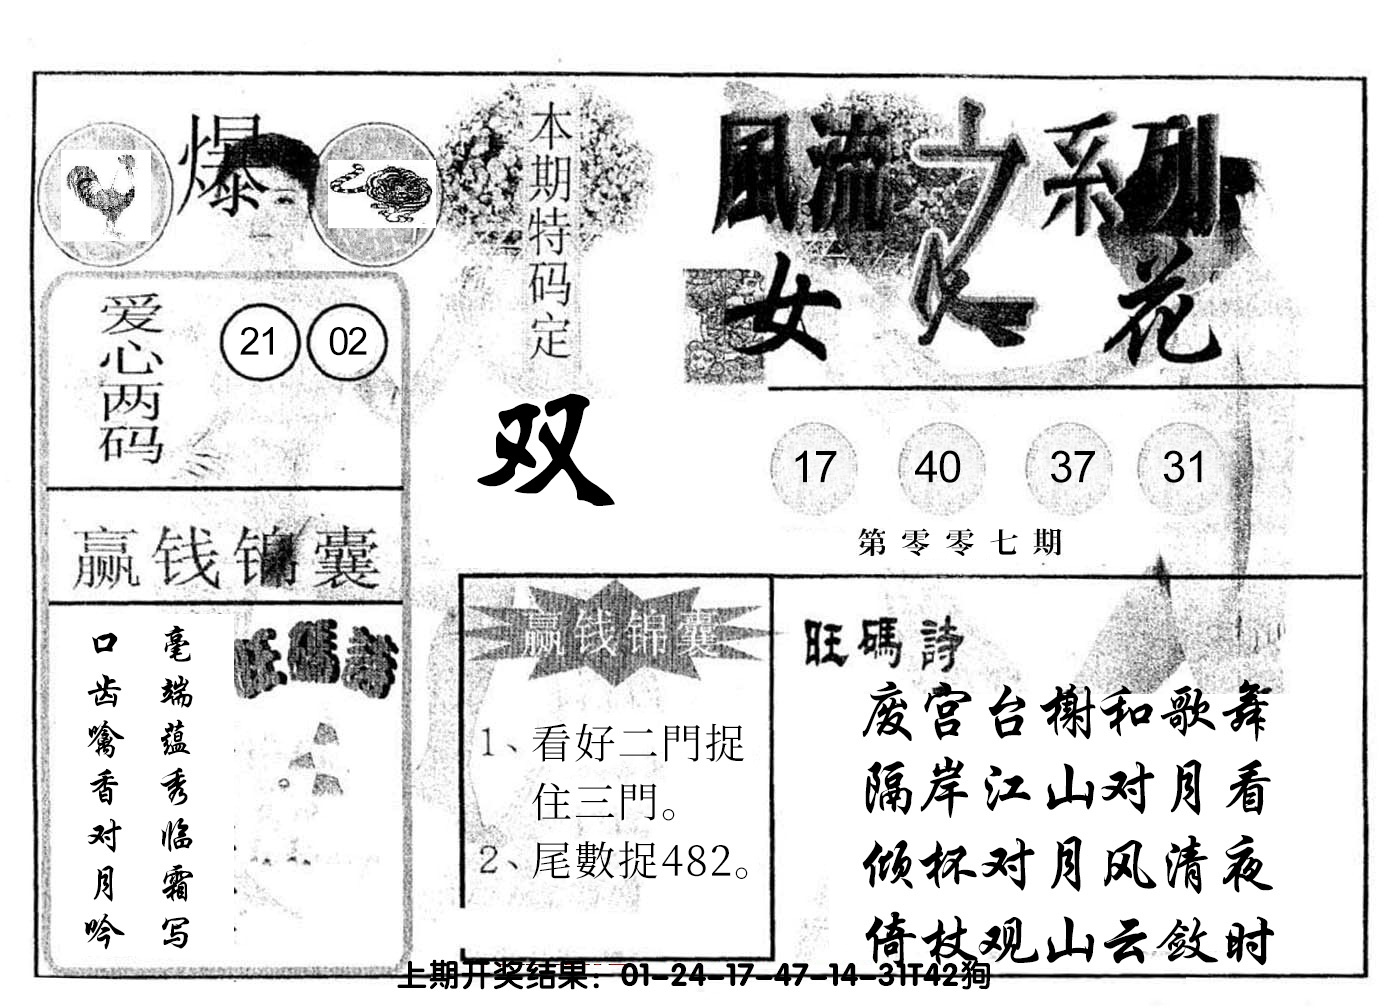 爆
本期特码定
双
風流之系列
女人花
爱心两码
21 02
17 40 37 31
第零零七期
赢钱锦囊
毫端蕴秀临霜写
口齿噙香对月吟
旺碼詩
赢钱锦囊
1、看好二門捉
住三門。
2、尾數捉482。
旺碼詩
废宫台榭和歌舞
隔岸江山对月看
倾杯对月风清夜
倚杖观山云敛时
上期开奖结果：01-24-17-47-14-31T42狗